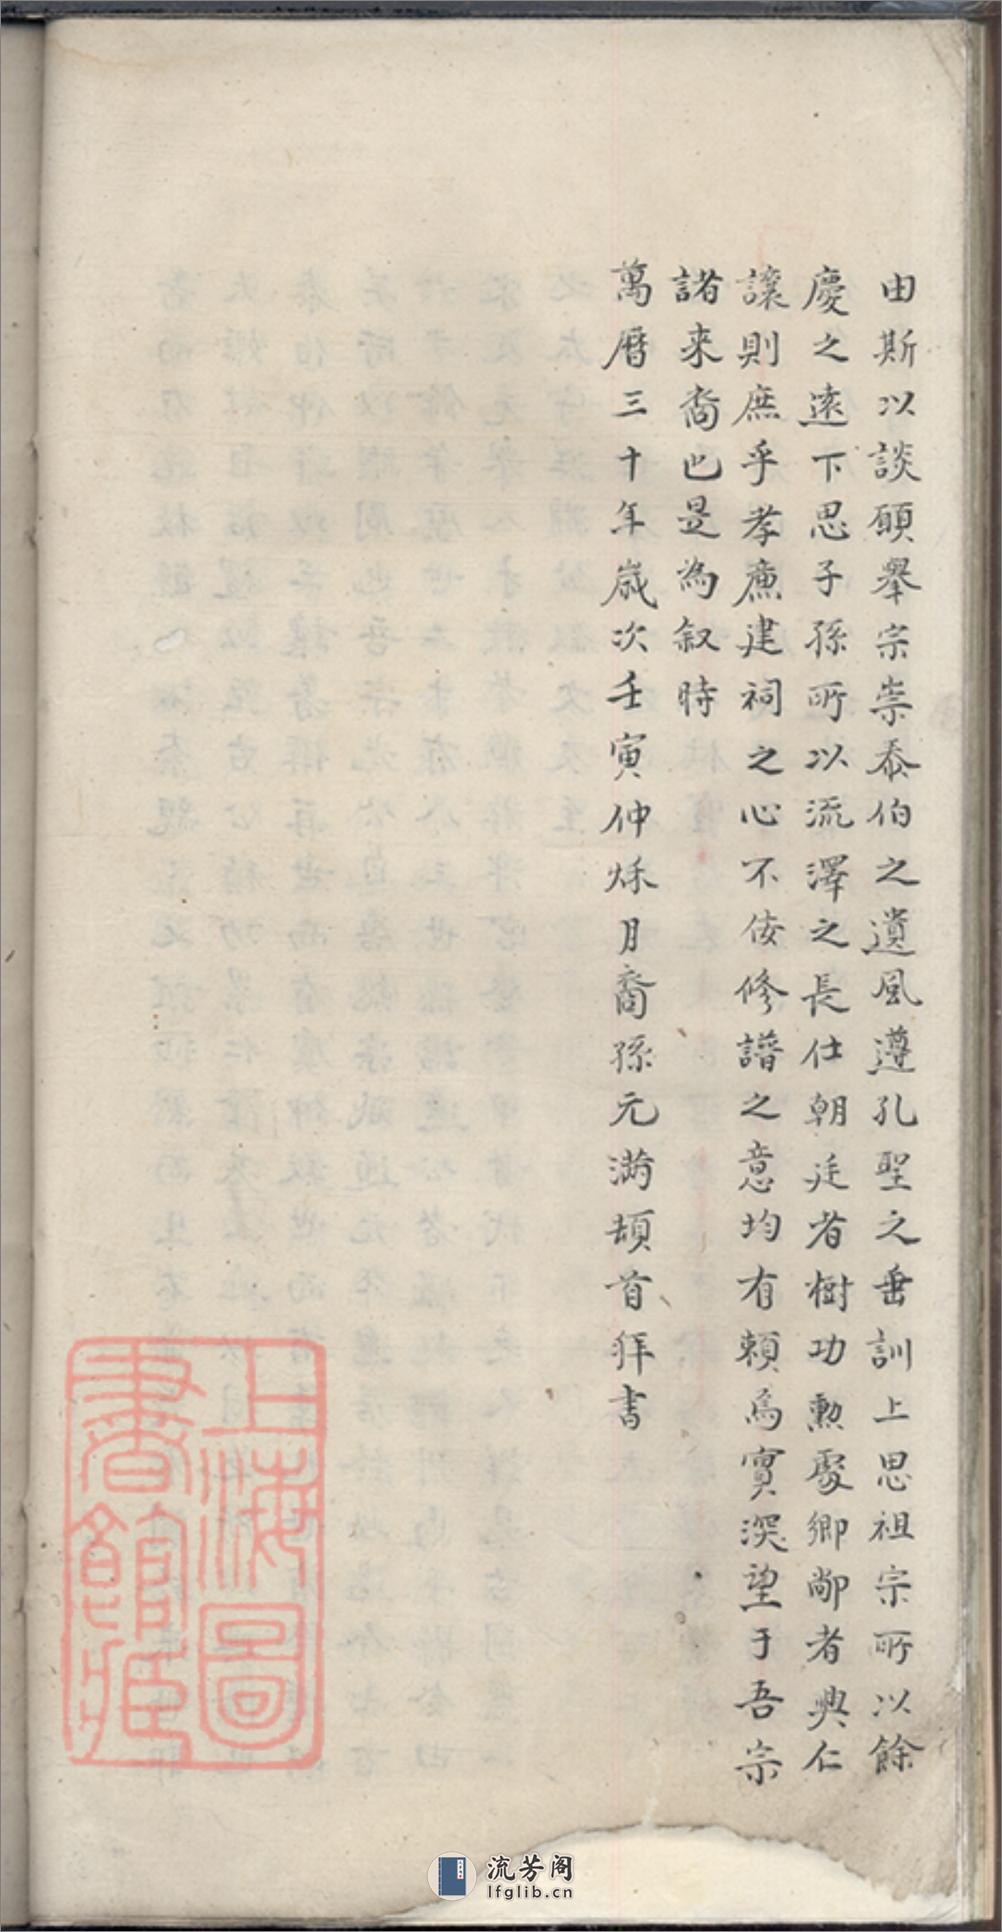 由斯以談願舉宗崇泰伯之遺風遵孔聖之垂訓上思祖宗所以餘
慶之遠下思子孫所以流澤之長仕朝廷者樹功勲處鄉鄰者興仁
讓則庶乎孝廉建祠之心不佞修譜之意均有賴焉實深望于吾宗
諸来裔也是為叙時
萬曆三十年歲次壬寅仲秌月裔孫元满頓首拜書
上海圖
書館藏
流芳阁
lfglib.cn